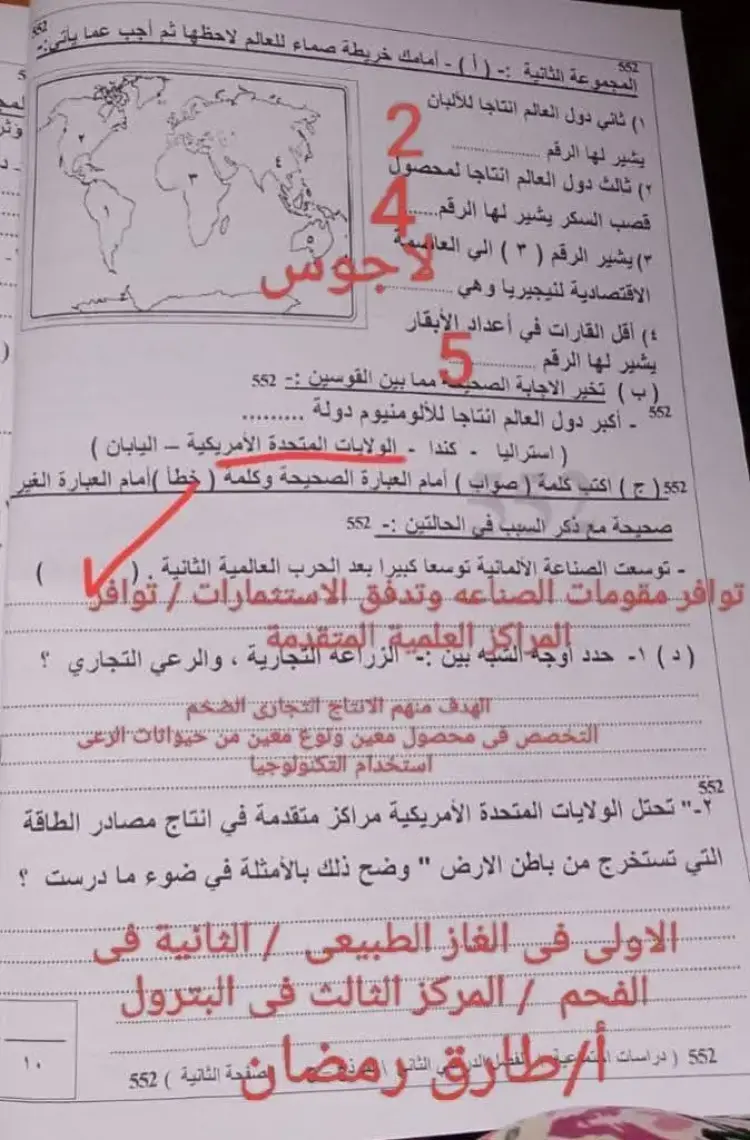 552
552
المجموعة الثانية :- ( أ ) - أمامك خريطة صماء للعالم لاحظها ثم أجب عما يأتي:-
١) ثاني دول العالم انتاجا للألبان
يشير لها الرقم ....................
2
٢) ثالث دول العالم انتاجا لمحصول
قصب السكر يشير لها الرقم........
4
٣) يشير الرقم ( ٣ ) الي العاصمة
الاقتصادية لنيجيريا وهي ..............
لاجوس
٤) أقل القارات في أعداد الأبقار
يشير لها الرقم ....................
5
٢
٣
٤
١
٥
( ب ) تخير الاجابة الصحيحة مما بين القوسين :- 552
552 - أكبر دول العالم انتاجا للألومنيوم دولة .........
( استراليا - كندا - الولايات المتحدة الأمريكية – اليابان )
552( ج ) اكتب كلمة ( صواب ) أمام العبارة الصحيحة وكلمة ( خطأ )أمام العبارة الغير
صحيحة مع ذكر السبب في الحالتين :- 552
- توسعت الصناعة الألمانية توسعا كبيرا بعد الحرب العالمية الثانية . ( )
توافر مقومات الصناعه وتدفق الاستثمارات / توافر
المراكز العلمية المتقدمة
( د ) ١- حدد أوجه الشبه بين :- الزراعة التجارية ، والرعي التجاري ؟
الهدف منهم الانتاج التجارى الضخم
التخصص فى محصول معين ونوع معين من حيوانات الرعى
استخدام التكنولوجيا
552
٢-" تحتل الولايات المتحدة الأمريكية مراكز متقدمة في انتاج مصادر الطاقة
التي تستخرج من باطن الارض " وضح ذلك بالأمثلة في ضوء ما درست ؟
الاولى فى الغاز الطبيعى / الثانية فى
الفحم / المركز الثالث فى البترول
أ/طارق رمضان
١٠
552 ( دراسات اجتماعية الفصل الدراسي الثاني الصفحة الثانية ) 552